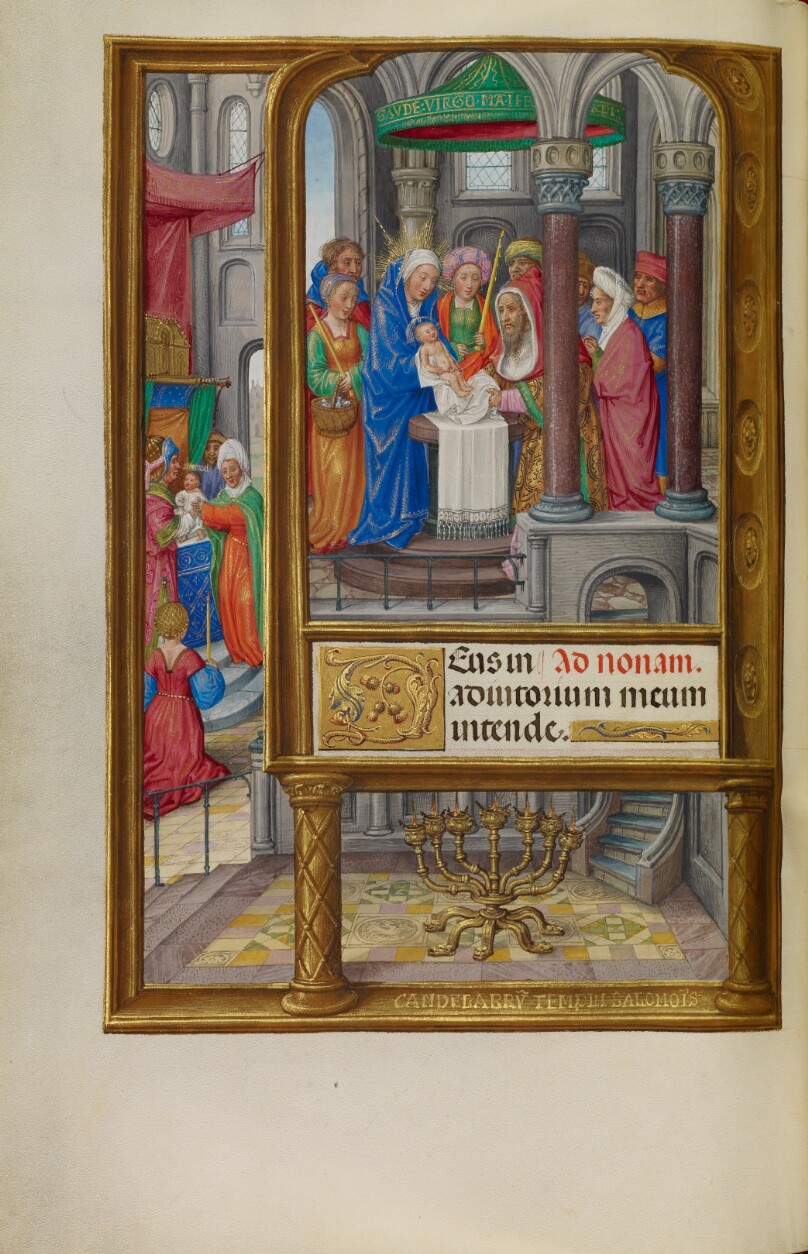 GAUDE·VIRGO·MATER
Eus in Ad nonam.
adiutorium meum
intende.
CANDELABRV̄ TEMPLI SALOMOĪS